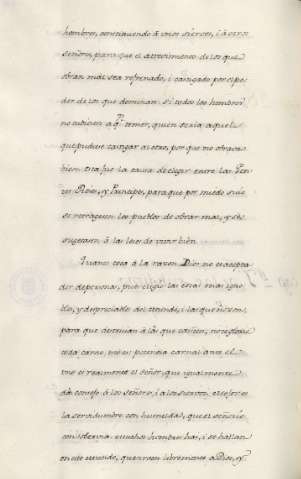 hombres, constituiendo à unos siervos, i à otros
señores, para que el atrevimiento de los que
obran mal sea refrenado, i castigado por el po-
der de los que dominan. si todos los hombres
no tubiesen a qn temer, quien seria aquel
que pudiese castigar al otro, por que no obrava
bien esta fue la causa de elegir entre las Gen
tes Reies, y Principes, para que por miedo suio
se retragesen los pueblos de obrar mal, y se
sugetasen à las leies de vivir bien.
Quanto toca à la razon Dios no es acepta
der de personas, pues eligio las cosas mas igno
bles, y despreciables del mundo, i las que no son,
para que destruian à las que
toda carne, potencia carnal ante el
el Señor, que igualmente
da consejo à los señores, i a los siervos
la servidumbre con humildad, que el señorio
con sobervia muchos hombres hai, i se hallan
en este mundo, que libremente a Dios, y